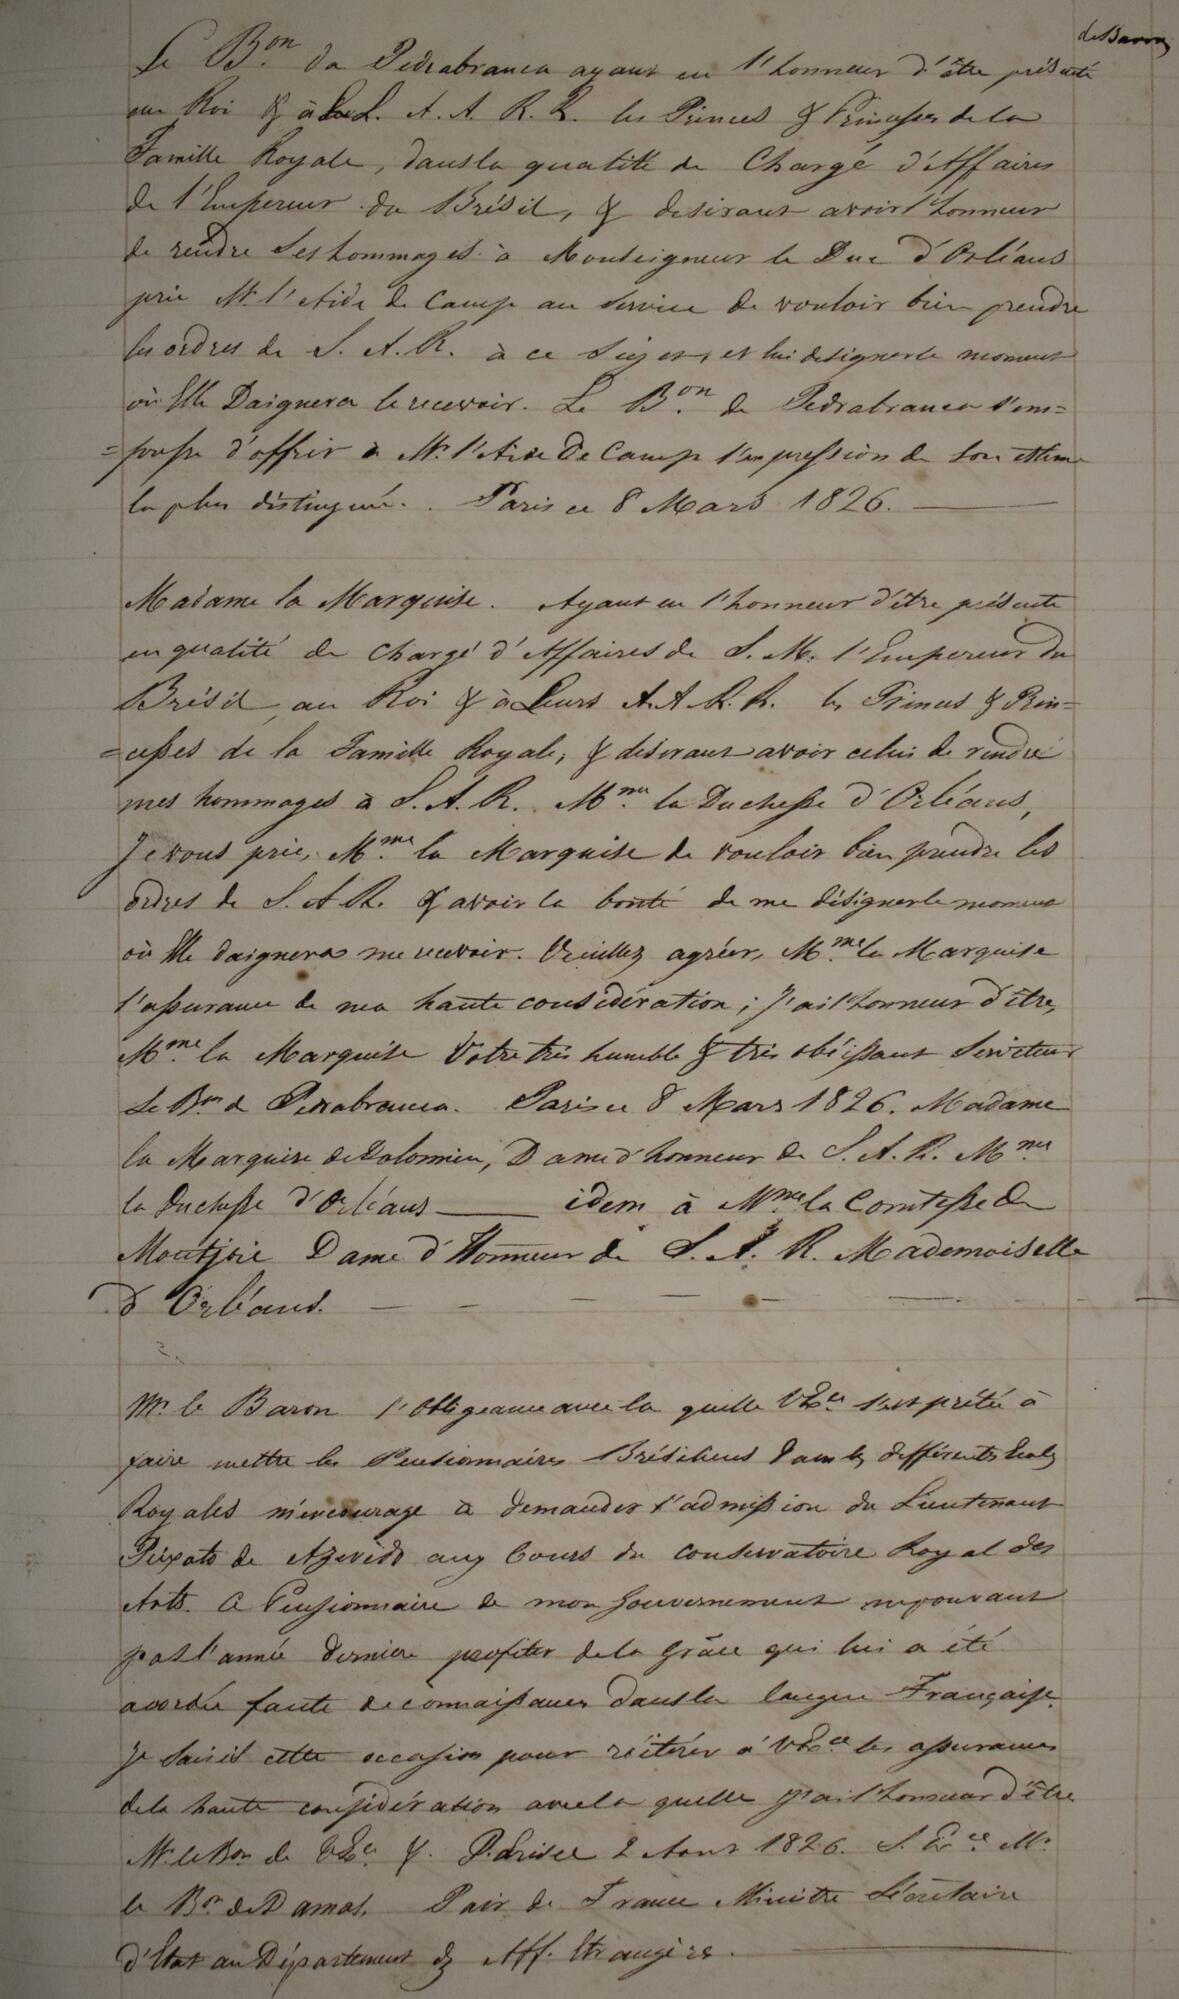 de Baron
Le B.on da Pedrabranca ayant eu l'honneur d'être présenté
au Roi & à LL. A. A. R. R. les Princes & Princesses de la
Famille Royale, dans la qualité de Chargé d'Affaires
de l'Empereur du Brésil, & desirant avoir l'honneur
de rendre Ses hommages à Monseigneur le Duc d'Orléans
prie Mr. l'Aide de Camp au Service de vouloir bien prendre
les ordres de S. A. R. à ce Sujet, et lui designer le moment
où Elle Daignera le recevoir. Le B.on de Pedrabranca s'em=
=presse d'offrir à Mr. l'Aide De Camp l'expression de Son estime
la plus distinguée. Paris ce 8 Mars 1826.
Madame la Marquise. Ayant eu l'honneur d'être présenté
en qualité de Chargé d'Affaires de S. M. l'Empereur du
Brésil, au Roi & à Leurs A. A. R. R. les Princes & Prin=
=cesses de la Famille Royale, & désirant avoir celui de rendre
mes hommages à S. A. R. M.me la Duchesse d'Orléans,
Je vous prie, M.me la Marquise de vouloir bien prendre les
ordres de S. A. R. & avoir la bonté de me désigner le moment
où Elle daignera me recevoir. Veuillez agréer, M.me la Marquise
l'assurance de ma haute considération; J'ai l'honneur d'être,
M.me la Marquise Votre très humble & très obéissant Serviteur
Le B.on de Pedrabranca. Paris ce 8 Mars 1826. Madame
la Marquise de Dolomieu, Dame d'honneur de S. A. R. M.me
la Duchesse d'Orléans ——— idem à M.me la Comtesse De
Montjoie Dame d'Honneur de S. A. R. Mademoiselle
d'Orléans.
Mr. le Baron l'Obligeance avec la quelle V.Ex.ce s'est prêtée à
faire mettre les Pensionnaires Brésiliens dans les différentes Ecoles
Royales m'encourage à demander l'admission du Lieutenant
Peixoto de Azevedo aux Cours du Conservatoire Royal des
Arts. Ce Pensionnaire de mon Gouvernement ne pouvant
pas l'année derniere profiter de la Grâce qui lui a été
accordée faute de connaissances dans la langue Française.
Je Saisis cette occasion pour réiterer à V.Ex.ce les assurances
de la haute considération avec la quelle j'ai l'honneur d'être
Mr. le B.on de V.Ex.ce &. Paris ce 2 Aout 1826. S. Ex.ce Mr.
le B.on de Damas, Pair de France Ministre Sécretaire
d'Etat au Département des Aff. Etrangères.